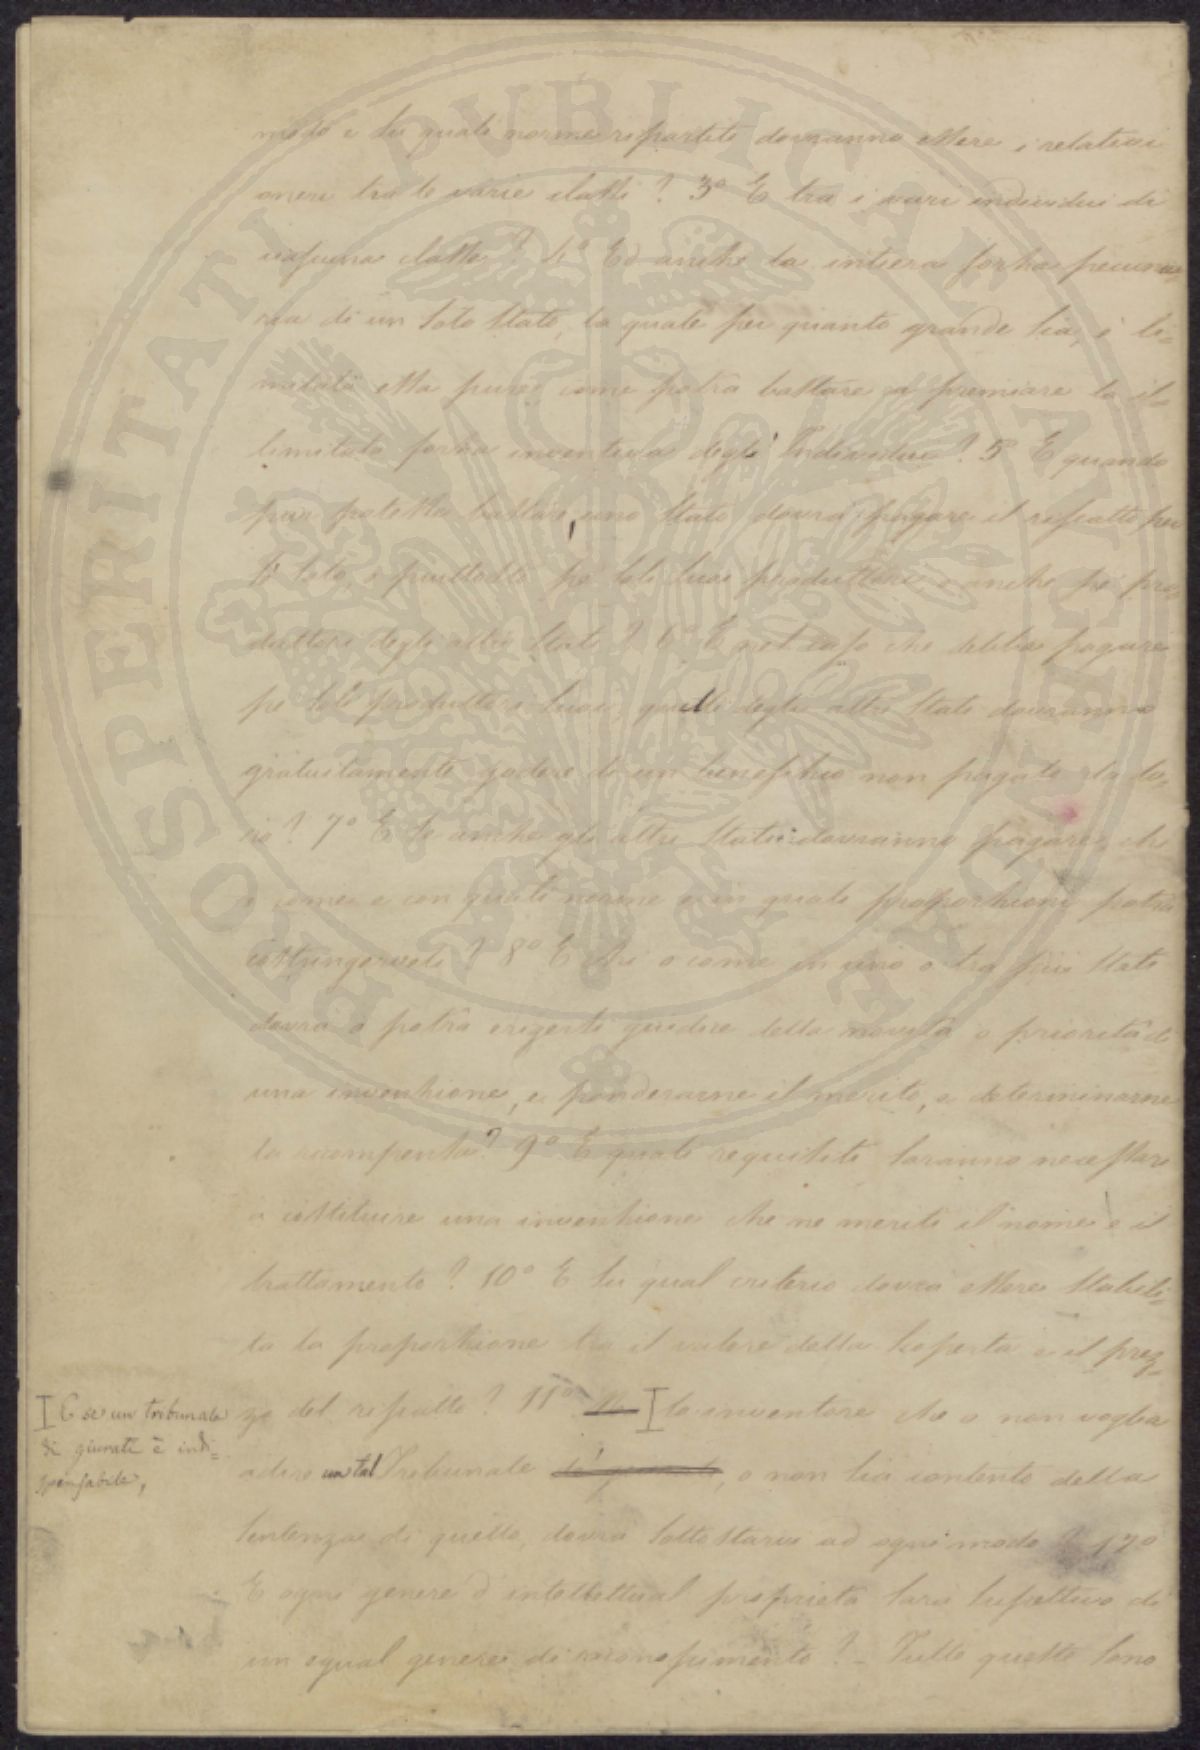 modo e su quali norme repartiti dovranno essere i relativi
oneri tra le varie classi? 3º E tra i vari individui di
ciascuna classe? 4º Ed anche la intiera forza pecunia-
ria di un solo Stato, la quale per quanto grande sia, è li=
mitata essa pure come potrà bastare a premiare la il-
limitata forza inventiva degli Individui? 5º E quando
pur potesse bastare, uno Stato dovrà pagare il riscatto per
sè solo, o piuttosto pe' soli suoi produttori o anche pe' pro-
duttori degli altri Stati? 6º E nel caso che debba pagare
pe' soli produttori suoi, quelli degli altri Stati dovranno
gratuitamente godere di un benefizio non pagato da lo-
ro? 7º E se anche gli altri Stati dovranno pagare, chi
e come e con quali norme e in quale proporzione potrà
costringerveli? 8º E chi o come in uno o tra più Stati
dovrà o potrà erigersi giudice della novità o priorità di
una invenzione, e ponderarne il merito, e determinarne
la ricompensa? 9º E quali requisiti saranno necessari
a costituire una invenzione che ne meriti il nome e il
trattamento? 10º E su qual criterio dovrà essere stabili-
ta la proporzione tra il valore della scoperta e il prez-
zo del riscatto? 11º lo inventore che o non voglia
I E se un tribunale
di giurati è indi=
spensabile,
adire un tal Tribunale, o non sia contento della
sentenza di quello, dovrà sottostarvi ad ogni modo? 12º
E ogni genere d'intellettual proprietà sarà suscettivo di
un egual genere di
? - Tutte queste sono
PROSPERITATI PVBLICAE AVGENDAE